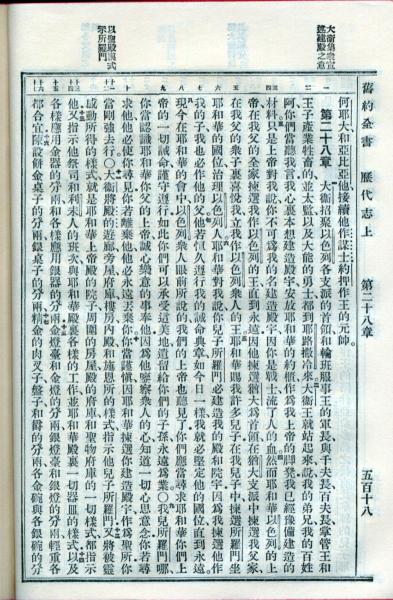 舊約全書 歷代志上 第二十八章 五百十八
大衛集衆宣
述建殿之意
何耶大和亞比亞他接續他作謀士約押作王的元帥。
第二十八章 大衛招聚以色列各支派的首領和輪班服事王的軍長與千夫長百夫長掌管王和
王子產業牲畜的並太監以及大能的勇士都到耶路撒冷來大衛王就站起來說我的弟兄我的百姓
阿你們當聽我言我心裏本想建造殿宇安放耶和華的約櫃作爲我上帝的脚凳我已經豫備建造的
材料只是上帝對我說你不可爲我的名建造殿宇因你是戰士流了人的血然而耶和華以色列的上
帝在我父的全家揀選我作以色列的王直到永遠因他揀選猶大爲首領在猶大支派中揀選我父家
在我父的衆子裏喜悅我立我作以色列衆人的王耶和華賜我許多兒子在我兒子中揀選所羅門坐
耶和華的國位治理以色列人耶和華對我說你兒子所羅門必建造我的殿和院宇因爲我揀選他作
我的子我也必作他的父他若恆久遵行我的誡命典章如今日一樣我就必堅定他的國位直到永遠
現今在耶和華的會中以色列衆人眼前所說的我們的上帝也聽見了你們應當尋求耶和華你們上
帝的一切誡命謹守遵行如此你們可以承受這美地遺留給你們的子孫永遠爲業○我兒所羅門哪
你當認識耶和華你父的上帝誠心樂意的事奉他因爲他鑒察衆人的心知道一切心思意念你若尋
求他他必使你尋見你若離棄他他必永遠丟棄你你當謹愼因耶和華揀選你建造殿宇作爲聖所你
以聖殿模式
示所羅門
當剛強去行○大衛將殿的遊廊旁屋府庫樓房內殿和施恩所的樣式指示他兒子所羅門又將被靈
感動所得的樣式就是耶和華上帝殿的院子周圍的房屋殿的府庫和聖物府庫的一切樣式都指示
他又指示他祭司和利未人的班次與耶和華殿裏各樣的工作並耶和華殿裏一切器皿的樣式以及
各樣應用金器的分兩和各樣應用銀器的分兩金燈臺和金燈的分兩銀燈臺和銀燈的分兩輕重各
都合宜陳設餅金桌子的分兩銀桌子的分兩精金的肉叉子盤子和爵的分兩各金碗與各銀碗的分